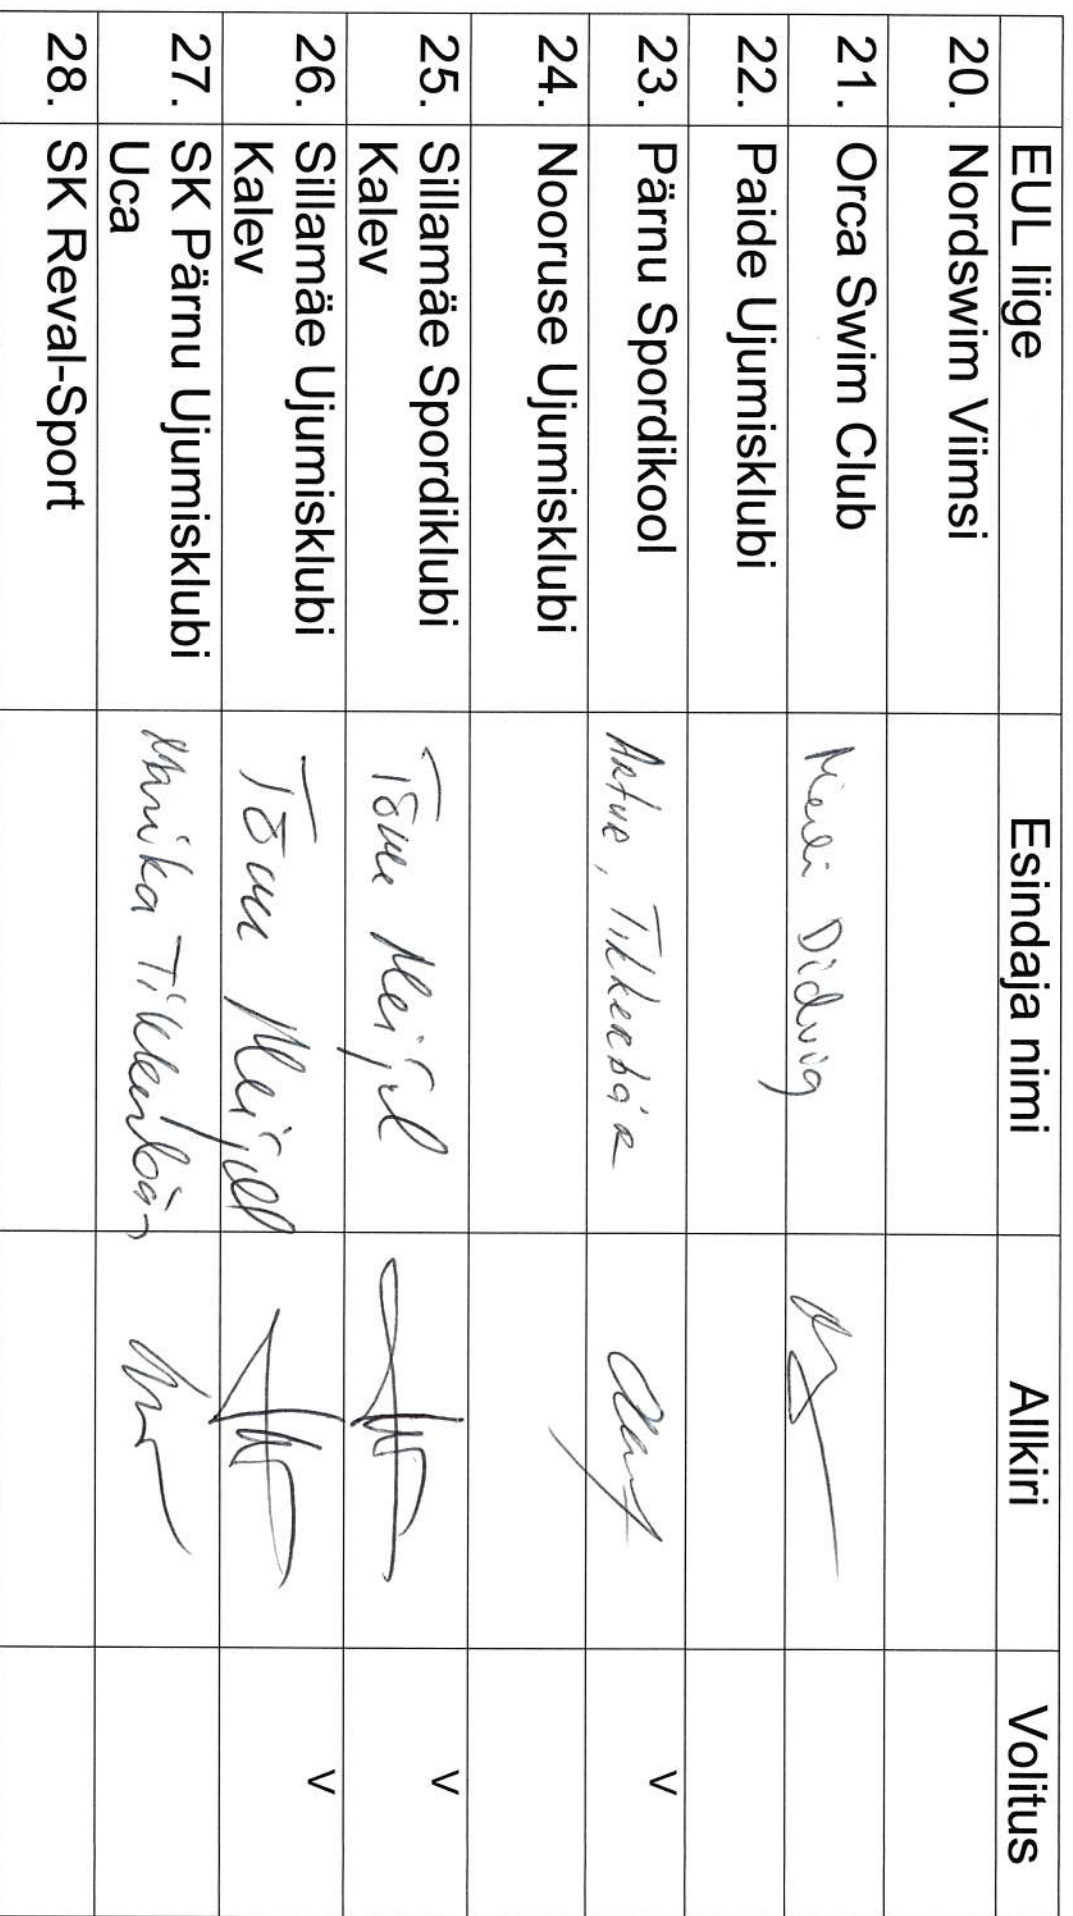 EUL liige Esindaja nimi Allkiri Volitus
20. Nordswim Viimsi
21. Orca Swim Club
22. Paide Ujumisklubi
23. Pärnu Spordikool Artur, Tikkerbär v
24. Nooruse Ujumisklubi
25. Sillamäe Spordiklubi Tõnu Meijel v
Kalev
26. Sillamäe Ujumisklubi Tõnu Meijell v
Kalev
27. SK Pärnu Ujumisklubi Annika Tikkerbär
Uca
28. SK Reval-Sport